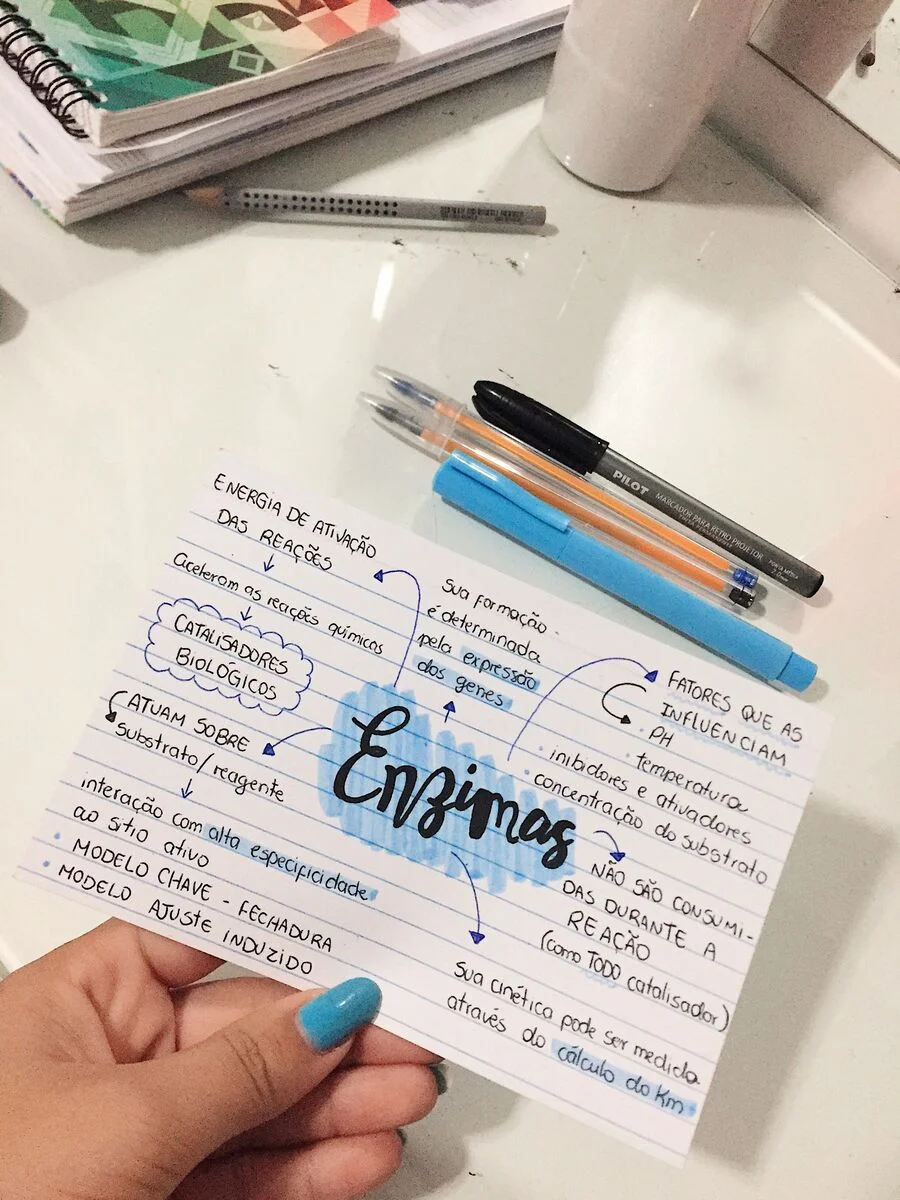 PILOT
MARCADOR PARA RETRO PROJETOR
PONTA MÉDIA
2.0mm
ENERGIA DE ATIVAÇÃO
DAS REAÇÕES
aceleram as reações químicas
CATALISADORES
BIOLÓGICOS
ATUAM SOBRE
Substrato/reagente
interação com alta especificidade
ao sítio ativo
• MODELO CHAVE - FECHADURA
• MODELO AJUSTE INDUZIDO
Sua formação
é determinada
pela expressão
dos genes
Enzimas
FATORES QUE AS
INFLUENCIAM
• PH
• temperatura
• inibidores e ativadores
• concentração do substrato
NÃO SÃO CONSUMI-
DAS DURANTE A
REAÇÃO
(como TODO catalisador)
Sua cinética pode ser medida
através do cálculo do Km